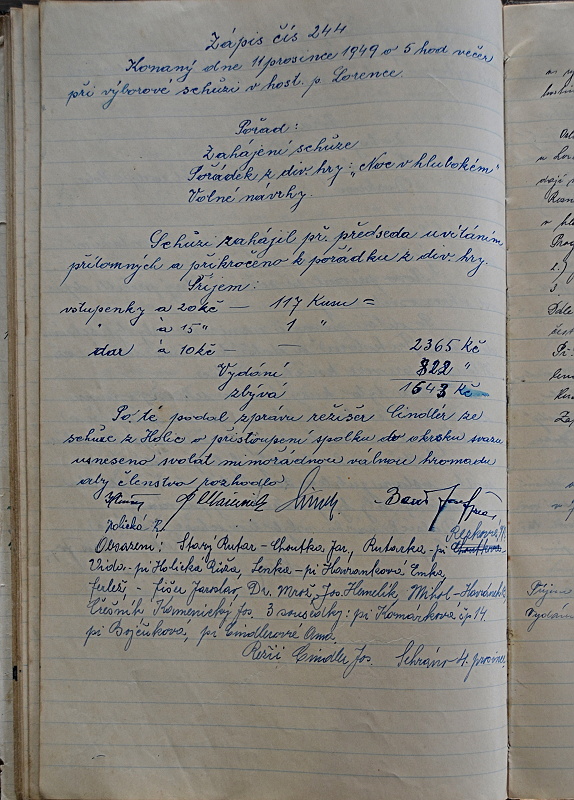 Zápis čís 244
Konaný dne 11 prosince 1949 o 5 hod večer
při výborové schůzi v host. p. Lorence.
Pořad:
Zahájení schůze
Pořádek z div. hry: „Noc v hlubokém"
Volné návrhy.
Schůzi zahájil př. předseda uvítáním
přítomných a přikročeno k pořádku z div. hry.
Příjem:
vstupenky a 20kč — 117 Kusu =
" á 15 " 1 "
dar á 10kč — — 2365 Kč
Vydání 822 "
zbývá 1543 Kč
Po té podal zprávu režisér Cindler ze
schůze z Holic o přistoupení spolku do okrsku svazu
usneseno svolat mimořádnou valnou hromadu
aby členstvo rozhodlo.
Holická R.
Řepková M.
Obsazení: Starý Rutar - Choutka Jar., Rutarka - pí
Vida - pí Holická Růža, Lenka - pí Havranková Emka,
Ferleš, - Fišer Jaroslav, Dr. Mrož, Jos Hamelik Mihol - Havránek
Číšník Kamenický Jos. 3 sousedky: pí Komárková čp 14.
pí Bojčukova, pí Cindlerová Ama.
Režii Cindler Jos. Sehráno 4. prosince